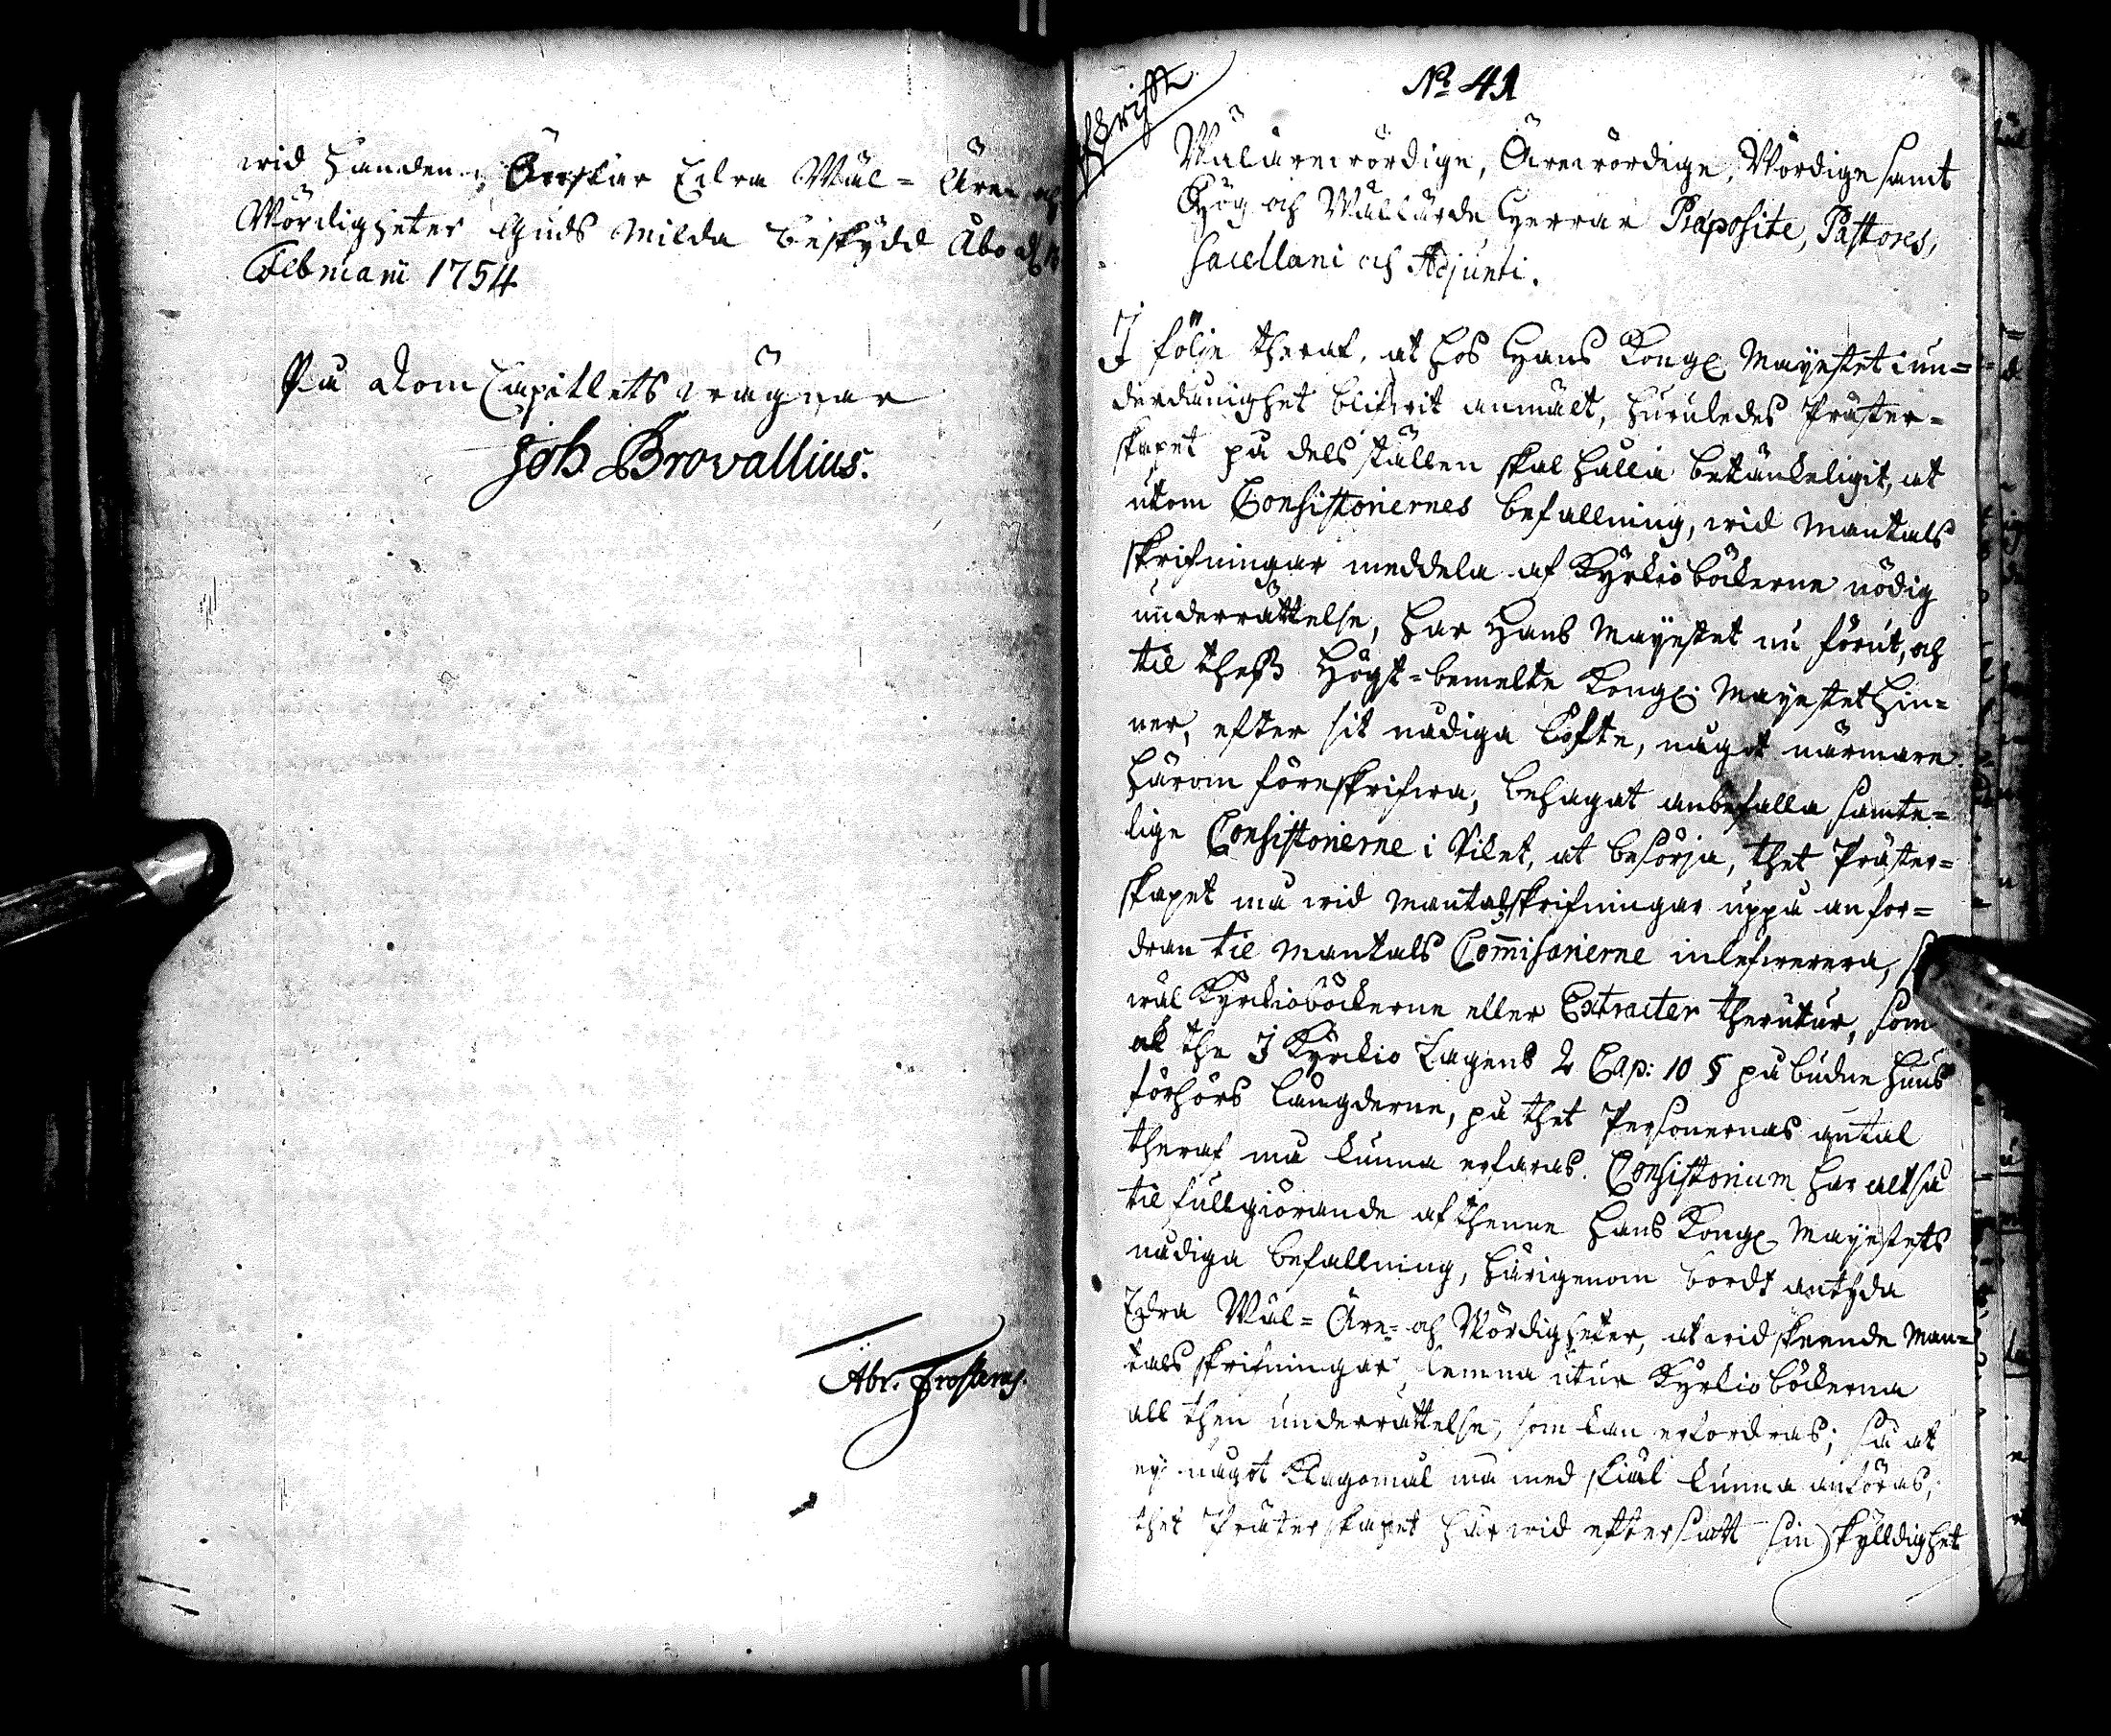 wid handen, Önskar Edra Wäl= Äre och
Wördigheter Guds milda beskydd Åbo d.
Februarii 1754
På DomCapitlets wägnar
Joh Browallius.
Abr. Frosterus.
Afskrifft
No 41
Wälärewördige, Ärewördige, Wördige samt
Hög och Wällärde Herrar Præposite, Pastores,
Sacellani och Adjuncti.
I följe theraf, at hos Hans Kongl Mayestet i un=
derdånighet blifwit anmält, huruledes Präster=
skapet på dels ställen skal hålla betänkeligit, at
utom Consistoriernes befallning, wid Mantals
skrifningar meddela af Kyrkioböckerne nödig
underrättelse, har Hans Mayestet nu förut, och
til thess Högst=bemelte Kongl. Mayestet hin=
ner, efter sit nådiga löfte, något närmare
härom föreskrifwa, behagat anbefalla samte=
lige Consistorierne i Riket, at besörja, thet Präster=
skapet må wid Mantalsskrifningar uppå anfor=
dran til Mantals Commisarierne inlefwerera, så
wäl Kyrkioböckerne eller Extracter therutur, som
ok the I Kyrkio Lagens 2 Cap: 10 § påbudne huus
förhörs längderne, på thet Personernas antal
theraf må kunna erfaras. Consistorium har altså
til fullgiörande af thenne Hans Kongl Mayestets
nådiga befallning, härigenom bordt antyda
Edra Wäl= Äre= och Wördigheter, at wid skeende Man=
tals skrifningar, lemna utur Kyrkioböckerna
all then underrättelse, som kan erfordras; så at
ey något klagomål må med skiäl kunna anföras,
thet Präterskapet härwid eftersatt sin skylldighet